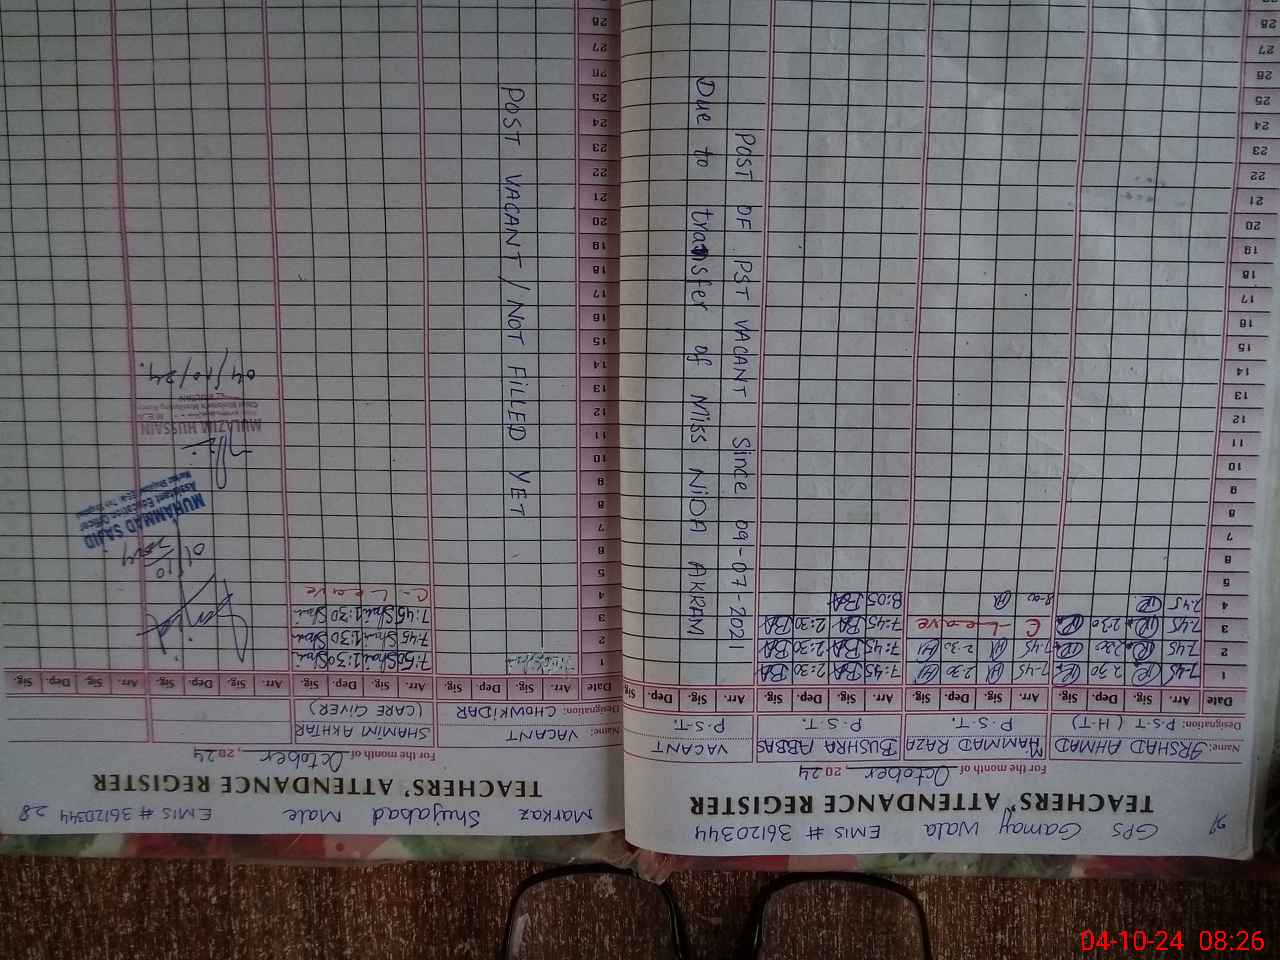 GPS Gamay Wala EMIS # 36120344
TEACHERS' ATTENDANCE REGISTER
For the month of October, 2024
Name: IRSHAD AHMAD
HAMMAD RAZA
BUSHRA ABBAS
VACANT
Designation: P.S.T (H-T)
P.S.T.
P.S.T.
P.S.T.
Date Arr. Sig. Dep. Sig. Arr. Sig. Dep. Sig. Arr. Sig. Dep. Sig. Arr. Sig. Dep. Sig.
1 7.45 2.30 7.45 2.30 7:45 BA 2:30 BA
2 7.45 2.30 7.45 2.30 7:45 BA 2:30 BA
3 7.45 2.30 C - Leave 7:45 BA 2:30 BA
4 7.45 8.00 8:05 BA
5
6
7
8
9
10
11
12
13
14
15
16
17
18
19
20
21
22
23
24
25
26
27
28
POST OF PST VACANT Since 09-07-2021
Due to transfer of Miss NIDA AKRAM
Markaz Shujabad Male EMIS # 36120344 28
TEACHERS' ATTENDANCE REGISTER
For the month of October, 2024
Name: VACANT
SHAMIM AKHTAR
Designation: CHOWKIDAR
(CARE GIVER)
Date Arr. Sig. Dep. Sig. Arr. Sig. Dep. Sig. Arr. Sig. Dep. Sig. Arr. Sig. Dep. Sig.
1 7:50 1:30
2 7:45 1:30
3 7:45 1:30
4 C - Leave
5
6
7
8
9
10
11
12
13
14
15
16
17
18
19
20
21
22
23
24
25
26
27
28
POST VACANT / NOT FILLED YET
MUHAMMAD SAJID
Assistant Education Officer
MULAZIM HUSSAIN
04/10/24.
04-10-24 08:26